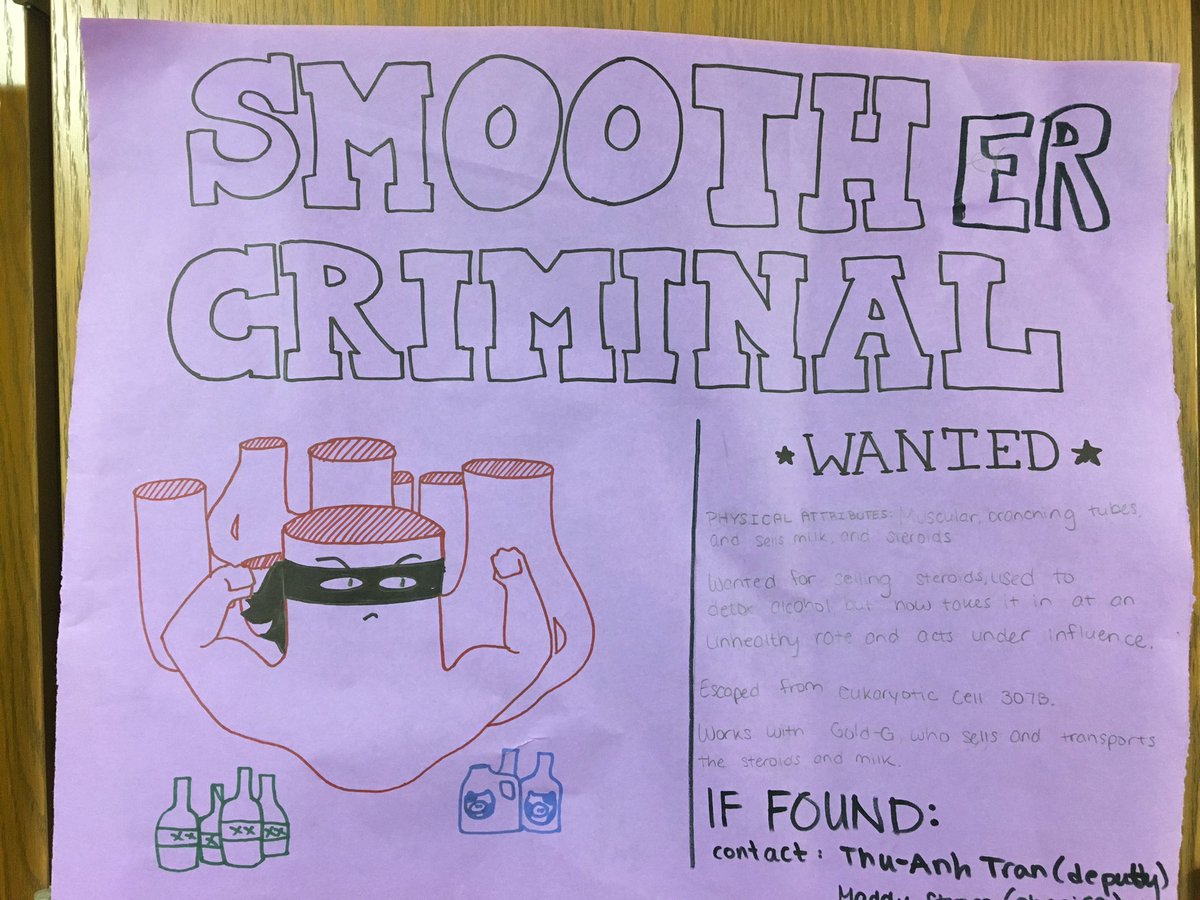 SMOOTHER
CRIMINAL
★WANTED★
PHYSICAL ATTRIBUTES: Muscular, branching tubes,
and sells milk, and steroids
Wanted for selling steroids, used to
detox alcohol but now takes it in at an
unhealthy rate and acts under influence.
Escaped from Eukaryotic Cell 307B.
Works with Gold-G, who sells and transports
the steroids and milk.
IF FOUND:
contact: Thu-Anh Tran (deputty)
Maddy
XX
X
XX
XX